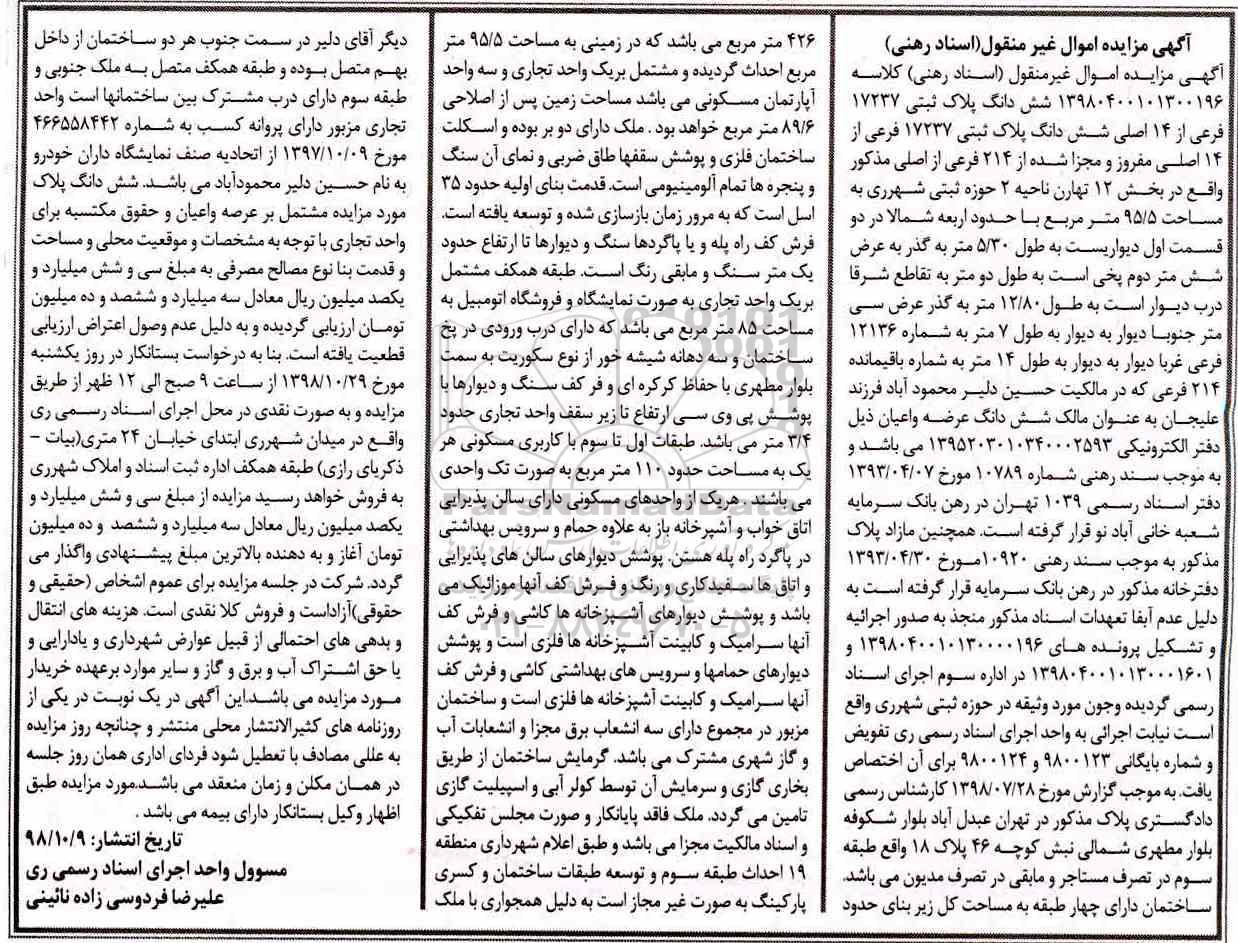 آگهی مزایده اموال غیر منقول(اسناد رهنی)
آگهـی مزایـده امـوال غیرمنقول (اسناد رهنی) کلاسـه
۱۳۹۸۰۴۰۰۱۰۱۳۰۰۱۹۶ شش دانگ پلاک ثبتی ۱۷۲۳۷
فرعی از ۱۴ اصلی شـش دانگ پلاک ثبتی ۱۷۲۳۷ فرعی از
۱۴ اصلـی مفروز و مجزا شـده از ۲۱۴ فرعی از اصلی مذکور
واقـع در بخـش ۱۲ تهارن ناحیه ۲ حوزه ثبتی شـهرری به
مساحت ۹۵/۵ متـر مربـع بـا حدود اربعه شـمالا در دو
قسمت اول دیواریست به طول ۵/۳۰ متر به گذر به عرض
شش متر دوم پخی است به طول دو متر به تقاطع شـرقا
درب دیـوار اسـت به طـول ۱۲/۸۰ متر به گذر عرض سـی
متر جنوبـا دیوار به دیوار به طول ۷ متر به شـماره ۱۲۱۳۶
فرعی غربا دیوار به دیوار به طول ۱۴ متر به شماره باقیمانده
۲۱۴ فرعی که در مالکیت حسین دلیـر محمود آباد فرزند
علیجان به عنـوان مالک شش دانگ عرضـه واعیان ذیل
دفتر الکترونیکی ۱۳۹۵۲۰۳۰۱۰۳۴۰۰۰۲۵۹۳ می باشد و
به موجب سـند رهنی شـماره ۱۰۷۸۹ مورخ ۱۳۹۳/۰۴/۰۷
دفتر اسـناد رسـمی ۱۰۳۹ تهـران در رهن بانک سـرمایه
شـعبه خانی آباد نو قرار گرفته اسـت. همچنین مازاد پلاک
مذکور به موجب سـند رهنی ۱۰۹۲۰مـورخ ۱۳۹۳/۰۴/۳۰
دفترخانه مذکور در رهن بانک سـرمایه قرار گرفته است به
دلیل عدم آبفا تعهدات اسـناد مذکور منجذ به صدور اجرائیه
و تشـکیل پرونـده هـای ۱۳۹۸۰۴۰۰۱۰۱۳۰۰۰۰۱۹۶ و
۱۳۹۸۰۴۰۰۱۰۱۳۰۰۰۱۶۰۱ در اداره سـوم اجرای اسـناد
رسمی گردیده وجون مورد وثیقه در حوزه ثبتی شهرری واقع
اسـت نیابت اجرائی به واحد اجرای اسناد رسمی ری تفویض
و شماره بایگانی ۹۸۰۰۱۲۳ و ۹۸۰۰۱۲۴ برای آن اختصاص
یافت. به موجب گزارش مورخ ۱۳۹۸/۰۷/۲۸ کارشناس رسمی
دادگستری پلاک مذکور در تهران عبدل آباد بلوار شـکوفه
بلوار مطهری شـمالی نبش کوچـه ۴۶ پلاک ۱۸ واقع طبقه
سـوم در تصرف مسـتاجر و مابقی در تصرف مدیون می باشد.
سـاختمان دارای چهار طبقه به مساحت کل زیر بنای حدود
۴۲۶ متر مربع می باشد که در زمینی به مساحت ۹۵/۵ متر
مربع احداث گردیده و مشتمل بریک واحد تجاری و سه واحد
آپارتمان مسـکونی می باشد مساحت زمین پس از اصلاحی
۸۹/۶ متر مربع خواهد بود . ملک دارای دو بر بوده و اسـکلت
ساختمان فلزی و پوشش سقفها طاق ضربی و نمای آن سنگ
و پنجره ها تمام آلومینیومی است. قدمت بنای اولیه حدود ۳۵
اسل است که به مرور زمان بازسازی شده و توسعه یافته است.
فرش کف راه پله و یا پاگردها سنگ و دیوارها تا ارتفاع حدود
یک متر سـنگ و مابقی رنگ اسـت. طبقه همکف مشتمل
بریک واحد تجاری به صورت نمایشگاه و فروشگاه اتومبیل به
مساحت ۸۵ متر مربع می باشد که دارای درب ورودی در پخ
سـاختمان و سـه دهانه شیشه خور از نوع سکوریت به سمت
بلوار مطهری با حفاظ کرکره ای و فر کف سـنگ و دیوارها با
پوشـش پی وی سـی ارتفاع تا زیر سقف واحد تجاری حدود
۳/۴ متر می باشد. طبقات اول تا سوم با کاربری مسکونی هر
یک به مساحت حدود ۱۱۰ متر مربع به صورت تک واحدی
می باشند . هریک از واحدهای مسکونی دارای سالن پذیرایی
اتاق خواب و آشپرخانه باز به علاوه حمام و سرویس بهداشتی
در پاگرد راه پله هستن. پوشش دیوارهای سالن های پذیرایی
و اتاق ها سـفیدکاری و رنگ و فـرش کف آنها موزائیک می
باشد و پوشـش دیوارهای آشـپزخانه ها کاشی و فرش کف
آنها سـرامیک و کابینت آشـپزخانه ها فلزی است و پوشش
دیوارهای حمامها و سرویس های بهداشتی کاشی و فرش کف
آنها سـرامیک و کابینت آشپزخانه ها فلزی است و ساختمان
مزبور در مجموع دارای سه انشعاب برق مجزا و انشعابات آب
و گاز شهری مشترک می باشد. گرمایش ساختمان از طریق
بخاری گازی و سرمایش آن توسط کولر آبی و اسپیلیت گازی
تامین می گردد. ملک فاقد پایانکار و صورت مجلس تفکیکی
و اسناد مالکیت مجزا می باشد و طبق اعلام شهرداری منطقه
۱۹ احداث طبقه سـوم و توسعه طبقات ساختمان و کسری
پارکینگ به صورت غیر مجاز است به دلیل همجواری با ملک
دیگر آقای دلیر در سـمت جنوب هر دو ساختمان از داخل
بهـم متصل بـوده و طبقه همکف متصل بـه ملک جنوبی و
طبقه سوم دارای درب مشـترک بین ساختمانها است واحد
تجاری مزبور دارای پروانه کسـب به شماره ۴۶۶۵۵۸۴۴۲
مورخ ۱۳۹۷/۱۰/۰۹ از اتحادیه صنف نمایشگاه داران خودرو
به نام حسـین دلیر محمودآباد می باشـد. شش دانگ پلاک
مورد مزایده مشتمل بر عرصه واعیان و حقوق مکتسبه برای
واحد تجاری با توجه به مشخصات و موقعیت محلی و مساحت
و قدمت بنا نوع مصالح مصرفی به مبلغ سی و شش میلیارد و
یکصد میلیون ریال معادل سه میلیارد و ششصد و ده میلیون
تومـان ارزیابی گردیده و به دلیل عدم وصول اعتراض ارزیابی
قطعیت یافته است. بنا به درخواست بستانکار در روز یکشنبه
مورخ ۱۳۹۸/۱۰/۲۹ از سـاعت ۹ صبح الی ۱۲ ظهر از طریق
مزایده و به صورت نقدی در محل اجرای اسـناد رسـمی ری
واقـع در میدان شـهرری ابتدای خیابـان ۲۴ متری(بیات –
ذکریای رازی) طبقه همکف اداره ثبت اسناد و املاک شهرری
به فروش خواهد رسید مزایده از مبلغ سی و شش میلیارد و
یکصد میلیون ریال معادل سه میلیارد و ششصد و ده میلیون
تومان آغاز و به دهنده بالاترین مبلغ پیشـنهادی واگذار می
گردد. شرکت در جلسه مزایده برای عموم اشخاص (حقیقی و
حقوقی)آزاداست و فروش کلا نقدی است. هزینه های انتقال
و بدهی های احتمالی از قبیل عوارض شهرداری و یادارایی و
یا حق اشـتراک آب و برق و گاز و سایر موارد برعهده خریدار
مـورد مزایده می باشـد.این آگهی در یک نوبـت در یکی از
روزنامه های کثیرالانتشار محلی منتشر و چنانچه روز مزایده
به عللی مصادف با تعطیل شود فردای اداری همان روز جلسه
در همـان مکلن و زمان منعقد می باشـد.مورد مزایده طبق
اظهار وکیل بستانکار دارای بیمه می باشد .
تاریخ انتشار: ۹۸/۱۰/۹
مسوول واحد اجرای اسناد رسمی ری
علیرضا فردوسی زاده نائینی
ParsNamadData
۰۲۱-۸۸۳۴۹۶۷۰-۵